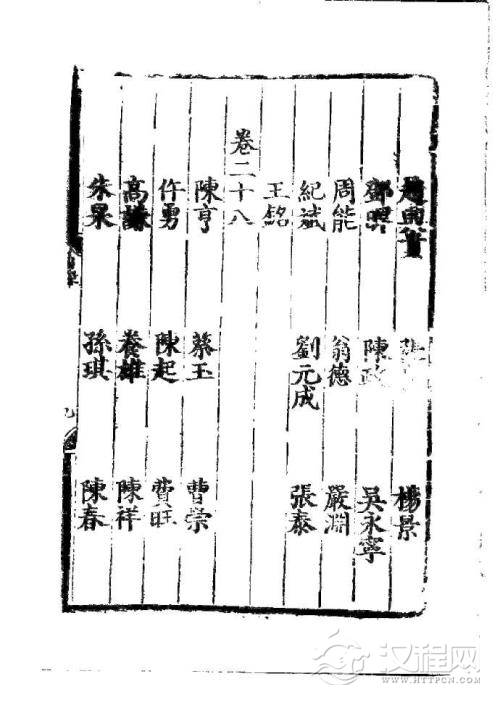 楊景
鄧興 陳政 吳永寧
周能 翁德 嚴淵
紀斌 劉元成 張泰
王銘
卷二十八
陳亨 蔡玉 曹崇
仵勇 陳起 費旺
高謙 養雄 陳祥
朱杲 孫琪 陳春
汉程网
WWW.HTTPCN.COM